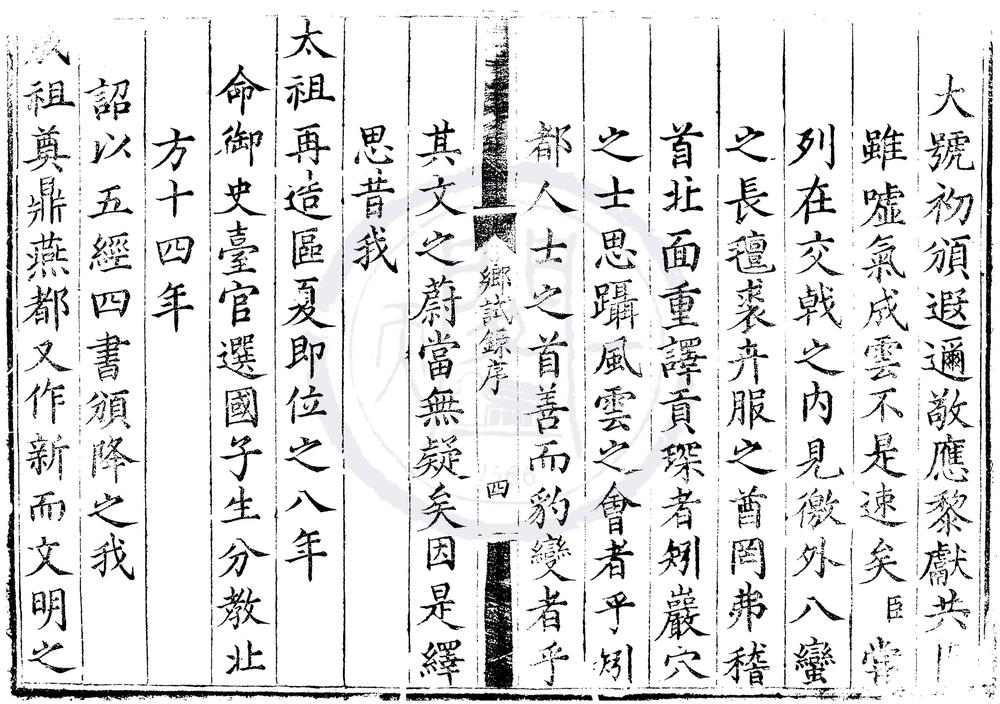 大號初頒遐邇敬應黎獻共
雖噓氣成雲不是速矣臣嘗
列在交戟之內見徼外八蠻
之長氊裘卉服之酋罔弗稽
首北面重譯貢琛者矧巖穴
之士思躡風雲之會者乎矧
都人士之首善而豹變者乎
鄉試錄序
四
其文之蔚當無疑矣因是繹
思昔我
太祖再造區夏即位之八年
命御史臺官選國子生分教北
方十四年
詔以五經四書頒降之我
成祖奠鼎燕都又作新而文明之